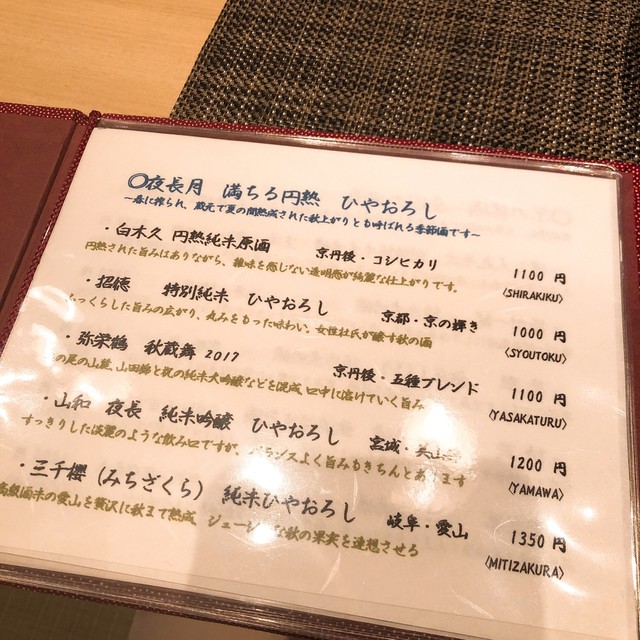 〇夜長月 満ちる円熟 ひやおろし
~春に搾られ、蔵元で夏の間熟成された秋上がりとも呼ばれる季節酒です~
・白木久 円熟純米原酒 京丹後・コシヒカリ 1100 円
円熟された旨みはありながら、雑味を感じない透明感が綺麗な仕上がりです。 〈SHIRAKIKU〉
・招徳 特別純米 ひやおろし 京都・京の輝き 1000 円
っくらした旨みの広がり、丸みをもった味わい、女性杜氏が醸す秋の酒 〈SYOUTOKU〉
・弥栄鶴 秋蔵舞 2017 京丹後・五種ブレンド 1100 円
の尾の山廃、山田錦と祝の純米大吟醸などを混成、口中に溶けていく旨み 〈YASAKATURU〉
・山和 夜長 純米吟醸 ひやおろし 宮城・美山 1200 円
すっきりした淡麗のような飲み口ですが、バランスよく旨みもきちんとあります 〈YAMAWA〉
・三千櫻(みちざくら) 純米ひやおろし 岐阜・愛山 1350 円
高級酒米の愛山を贅沢に秋まで熟成、ジューシーな秋の果実を連想させる 〈MITIZAKURA〉